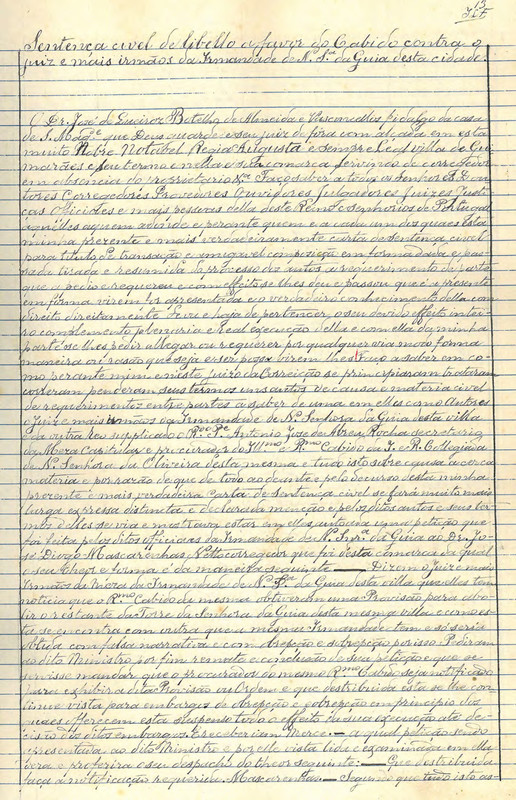 13
Sentença civel de libello a favor do Cabido contra o
juiz e mais irmãos da Irmandade de N. Sª da Guia desta cidade.
O Dr. José de Queiroz Botelho de Almeida e Vasconcellos fidalgo da casa
de S. Magde que Deus guarde e seu juiz de fora com alçada em esta
muito Nobre Notabel Regia Augusta e sempre Leal villa de Gui
marães e seu termo e nella e sua comarca servindo de corregedor
em absencia do proprietario &ª Faço saber a todos os senhores Do
tores Corregedores Provedores Ouvidores Julgadores Juizes Justi
ças Officiaes e mais pessoas della deste Reino e senhorios de Portugal
aquelles aquem adonde e perante quem e a cada um dos quaes esta
minha prezente e mais verdadeiramente carta de sentença civel
para titulo de transação e amigavel composição em forma dada e pas
sada tirada e resumida do processo dos autos a requerimento da parte
que a pedio e requereu e com effeito se lhes deu e passou que a presente
em forma virem lhes apresentada e o verdadeiro conhecimento della com
direito direitamente deve e haja de pertencer o seu devido effeito intei
ro complemento plenaria e Real execução della e com ella da minha
parte se lhes pedir allegar ou requerer por qualquer via modo forma
maneira ou rasão que seja e ser possa birem lhes Faço a saber em co
mo perante mim e neste Juizo da Correição se principiaram trataram
correram penderam seus termos uns autos de causa e materia civel
de requerimentos entre partes a saber de uma em elles como Autores
o Juiz e mais irmãos da Irmandade de Nª Senhora da Guia desta villa
e da outra Reo supplicado o Rdo Pe Antonio Jose de Abreu Rocha secretario
da Meza Capitular e procurador do Illmo e Rmo Cabido da I. e R. Collegiada
de Nª Senhora da Oliveira desta mesma e tudo isto sobre e causa acerca
materia e por razão de que de todo ao deante e pelo decurso desta minha
prezente e mais verdadeira carta de sentença civel se fará muito mais
larga expressa distincta e declarada menção e pelos ditos autos e seus ter
mos delles se via e mostrava estar em elles autoada uma petição que
foi feita pelos ditos officiaes da Irmandade de Nª Snrª da Guia ao Dr. Jo
sé Diogo Mascarenhas Netto corregedor que foi desta comarca da qual
o seu theor e forma é da maneira seguinte — Dizem o Juiz e mais
Irmãos da Meza da Irmandade de Nª Srª da Guia desta villa que elles tem
noticia que o Rmo Cabido da mesma obtiveram uma Provisão para abo
lir o restante da Torre da Senhora da Guia desta mesma villa e como es
ta se encontra com outra que a mesma Irmandade tem e só seria
obtida com falsa narrativa e com obrepção e subrepção por isso Pediram
ao dito Ministro por fim remate e conclusão de sua petição e que se
servisse mandar que o procurador do mesmo Rmo Cabido seja notificado
para exhibir a dita Provisão ou Ordem e que destribuida esta se lhe con
tinue vista para embargos de obrepção e subrepção em principio dos
quaes offerecem esta suspenso todo o effeito da sua execução até de
cisão dos ditos embargos E receberiam Merce. — a qual petição sendo
apresentada ao dito Ministro e por elle vista lida e examinada em ella
dera e proferira o seu despacho do theor seguinte: — Que destribuida
faça a notificação requerida. Mascarenhas. — Segundo que tudo isto as-